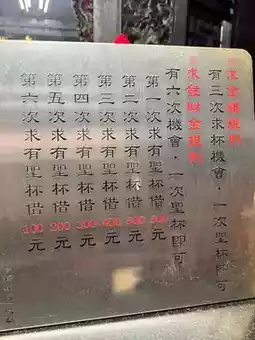 求金錢規則
有三次求杯機會，一次聖杯即可
求發財金規則
有六次機會，一次聖杯即可
第一次求有聖杯借600元
第二次求有聖杯借500元
第三次求有聖杯借400元
第四次求有聖杯借300元
第五次求有聖杯借200元
第六次求有聖杯借100元